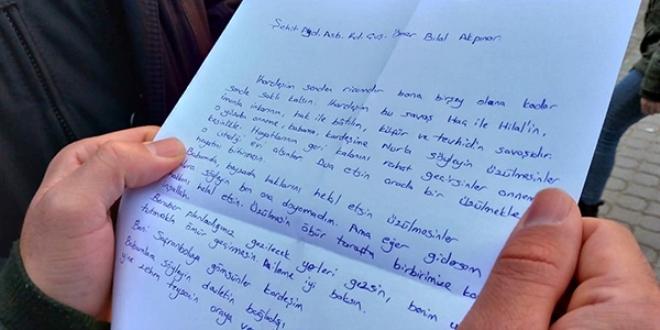 Şehit Astb. Kd. Çvş. Ömer Bilal Akpınar
Kardeşim senden ricamdır bana birşey olana kadar
sende saklı kalsın. Kardeşim bu savaş Haç ile Hilal'in,
imanla inkarının, hak ile batılın, küfür ve tevhidin savaşıdır.
o günden anneme, babama, kardeşime Nurla söyleyin üzülmesinler
kesinlikle. Hayatlarının geri kalanını rahat geçirsinler annem
o istediği evi alsınlar. Dua etsin arada bir üzülmekle
hayatını bitirmesin.
Babamda, beyzada haklarını helal etsin üzülmesinler
söyleyin ben ona doyamadım. Ama eğer gidersem
hakkını helal etsin. Üzülmesin öbür tarafta birbirimize
inşallah.
Beraber planladığımız gezilecek yerleri gezsin, benim
tutmakla ömür geçirmesin. Haleme iyi baksın.
Beni Safranboluya gömsünler kardeşim
Babamlara söyleyin davletin bağladığı
yine zehra teyzenin oraya ve